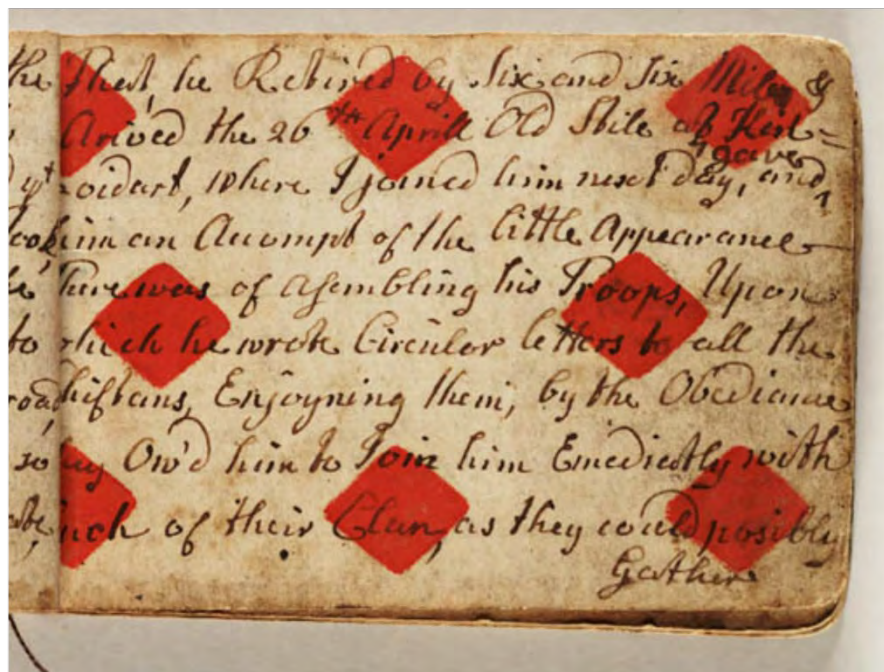 he Retired by Six and Six Miles &
Arived the 26th Aprill Old Stile at Kin=
gave
oidart, where I joined him next day, and,
him an Accompt of the little Appearance
There was of Asembling his Troops, Upon
which he wrote Circular letters to all the
hiftans, Enjoyning them, by the Obediance
they Ow'd him to Join him Emediatly with
such of their Clan, as they could posibly
Gather